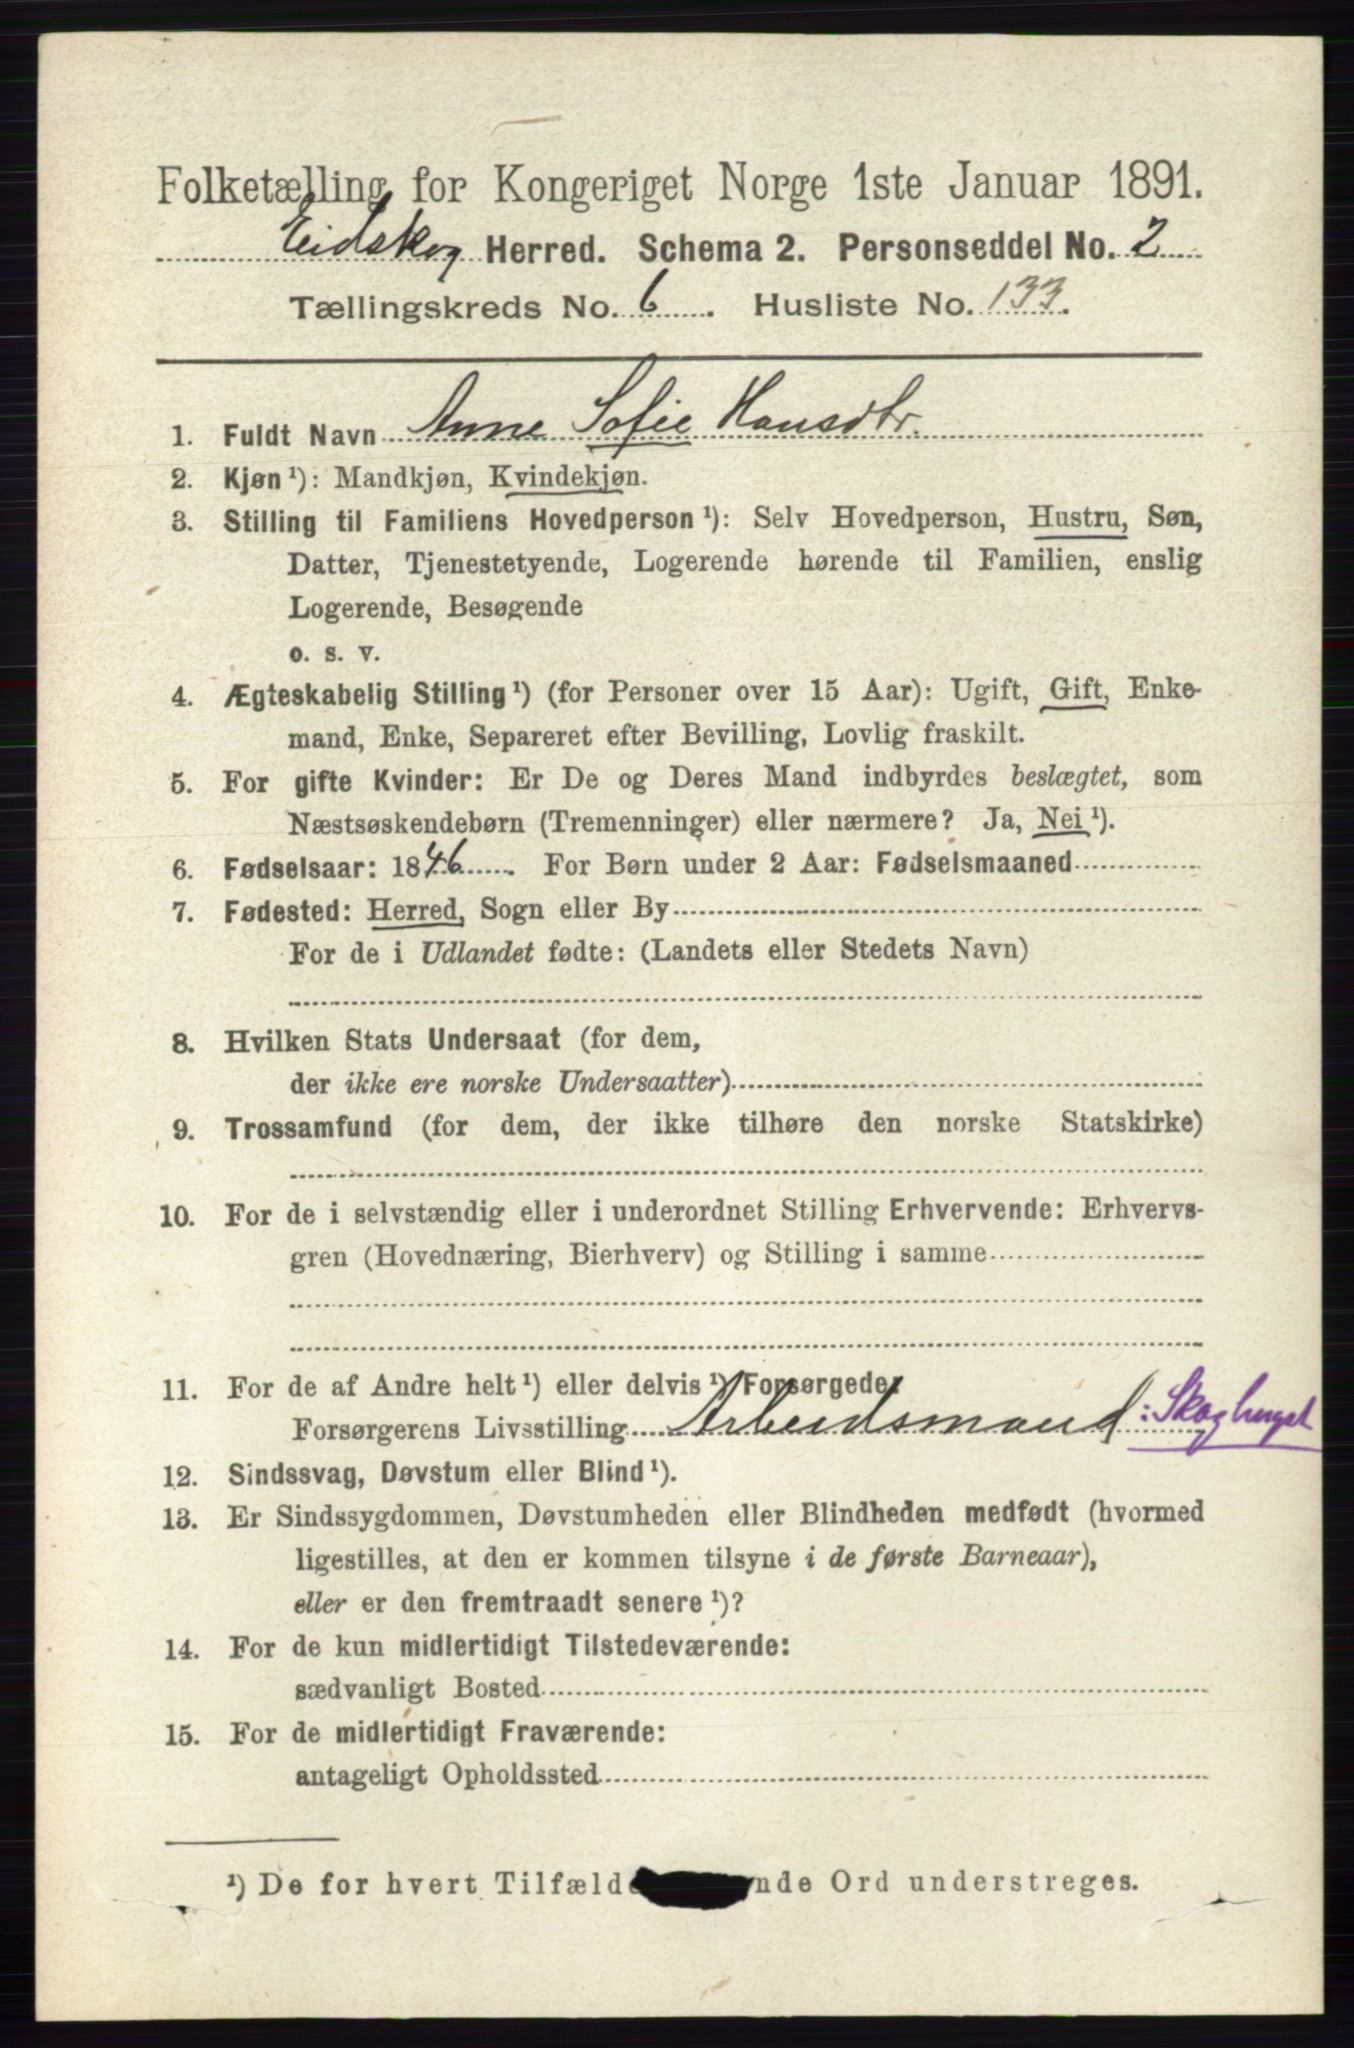 Folketælling for Kongeriget Norge 1ste Januar 1891.
Eidskog Herred. Schema 2. Personseddel No. 2
Tællingskreds No. 6. Husliste No. 133.
1. Fuldt Navn Anne Sofie Hansdtr.
2. Kjøn ¹): Mandkjøn, Kvindekjøn.
3. Stilling til Familiens Hovedperson ¹): Selv Hovedperson, Hustru, Søn,
Datter, Tjenestetyende, Logerende hørende til Familien, enslig
Logerende, Besøgende
o. s. v.
4. Ægteskabelig Stilling ¹) (for Personer over 15 Aar): Ugift, Gift, Enke-
mand, Enke, Separeret efter Bevilling, Lovlig fraskilt.
5. For gifte Kvinder: Er De og Deres Mand indbyrdes beslægtet, som
Næstsøskendebørn (Tremenninger) eller nærmere? Ja, Nei ¹).
6. Fødselsaar: 1846. For Børn under 2 Aar: Fødselsmaaned
7. Fødested: Herred, Sogn eller By
For de i Udlandet fødte: (Landets eller Stedets Navn)
8. Hvilken Stats Undersaat (for dem,
der ikke ere norske Undersaatter)
9. Trossamfund (for dem, der ikke tilhøre den norske Statskirke)
10. For de i selvstændig eller i underordnet Stilling Erhvervende: Erhvervs-
gren (Hovednæring, Bierhverv) og Stilling i samme
11. For de af Andre helt ¹) eller delvis ¹) Forsørgede:
Forsørgerens Livsstilling Arbeidsmand :Skoghugst
12. Sindssvag, Døvstum eller Blind ¹).
13. Er Sindssygdommen, Døvstumheden eller Blindheden medfødt (hvormed
ligestilles, at den er kommen tilsyne i de første Barneaar),
eller er den fremtraadt senere ¹)?
14. For de kun midlertidigt Tilstedeværende:
sædvanligt Bosted
15. For de midlertidigt Fraværende:
antageligt Opholdssted
¹) De for hvert Tilfælde nde Ord understreges.